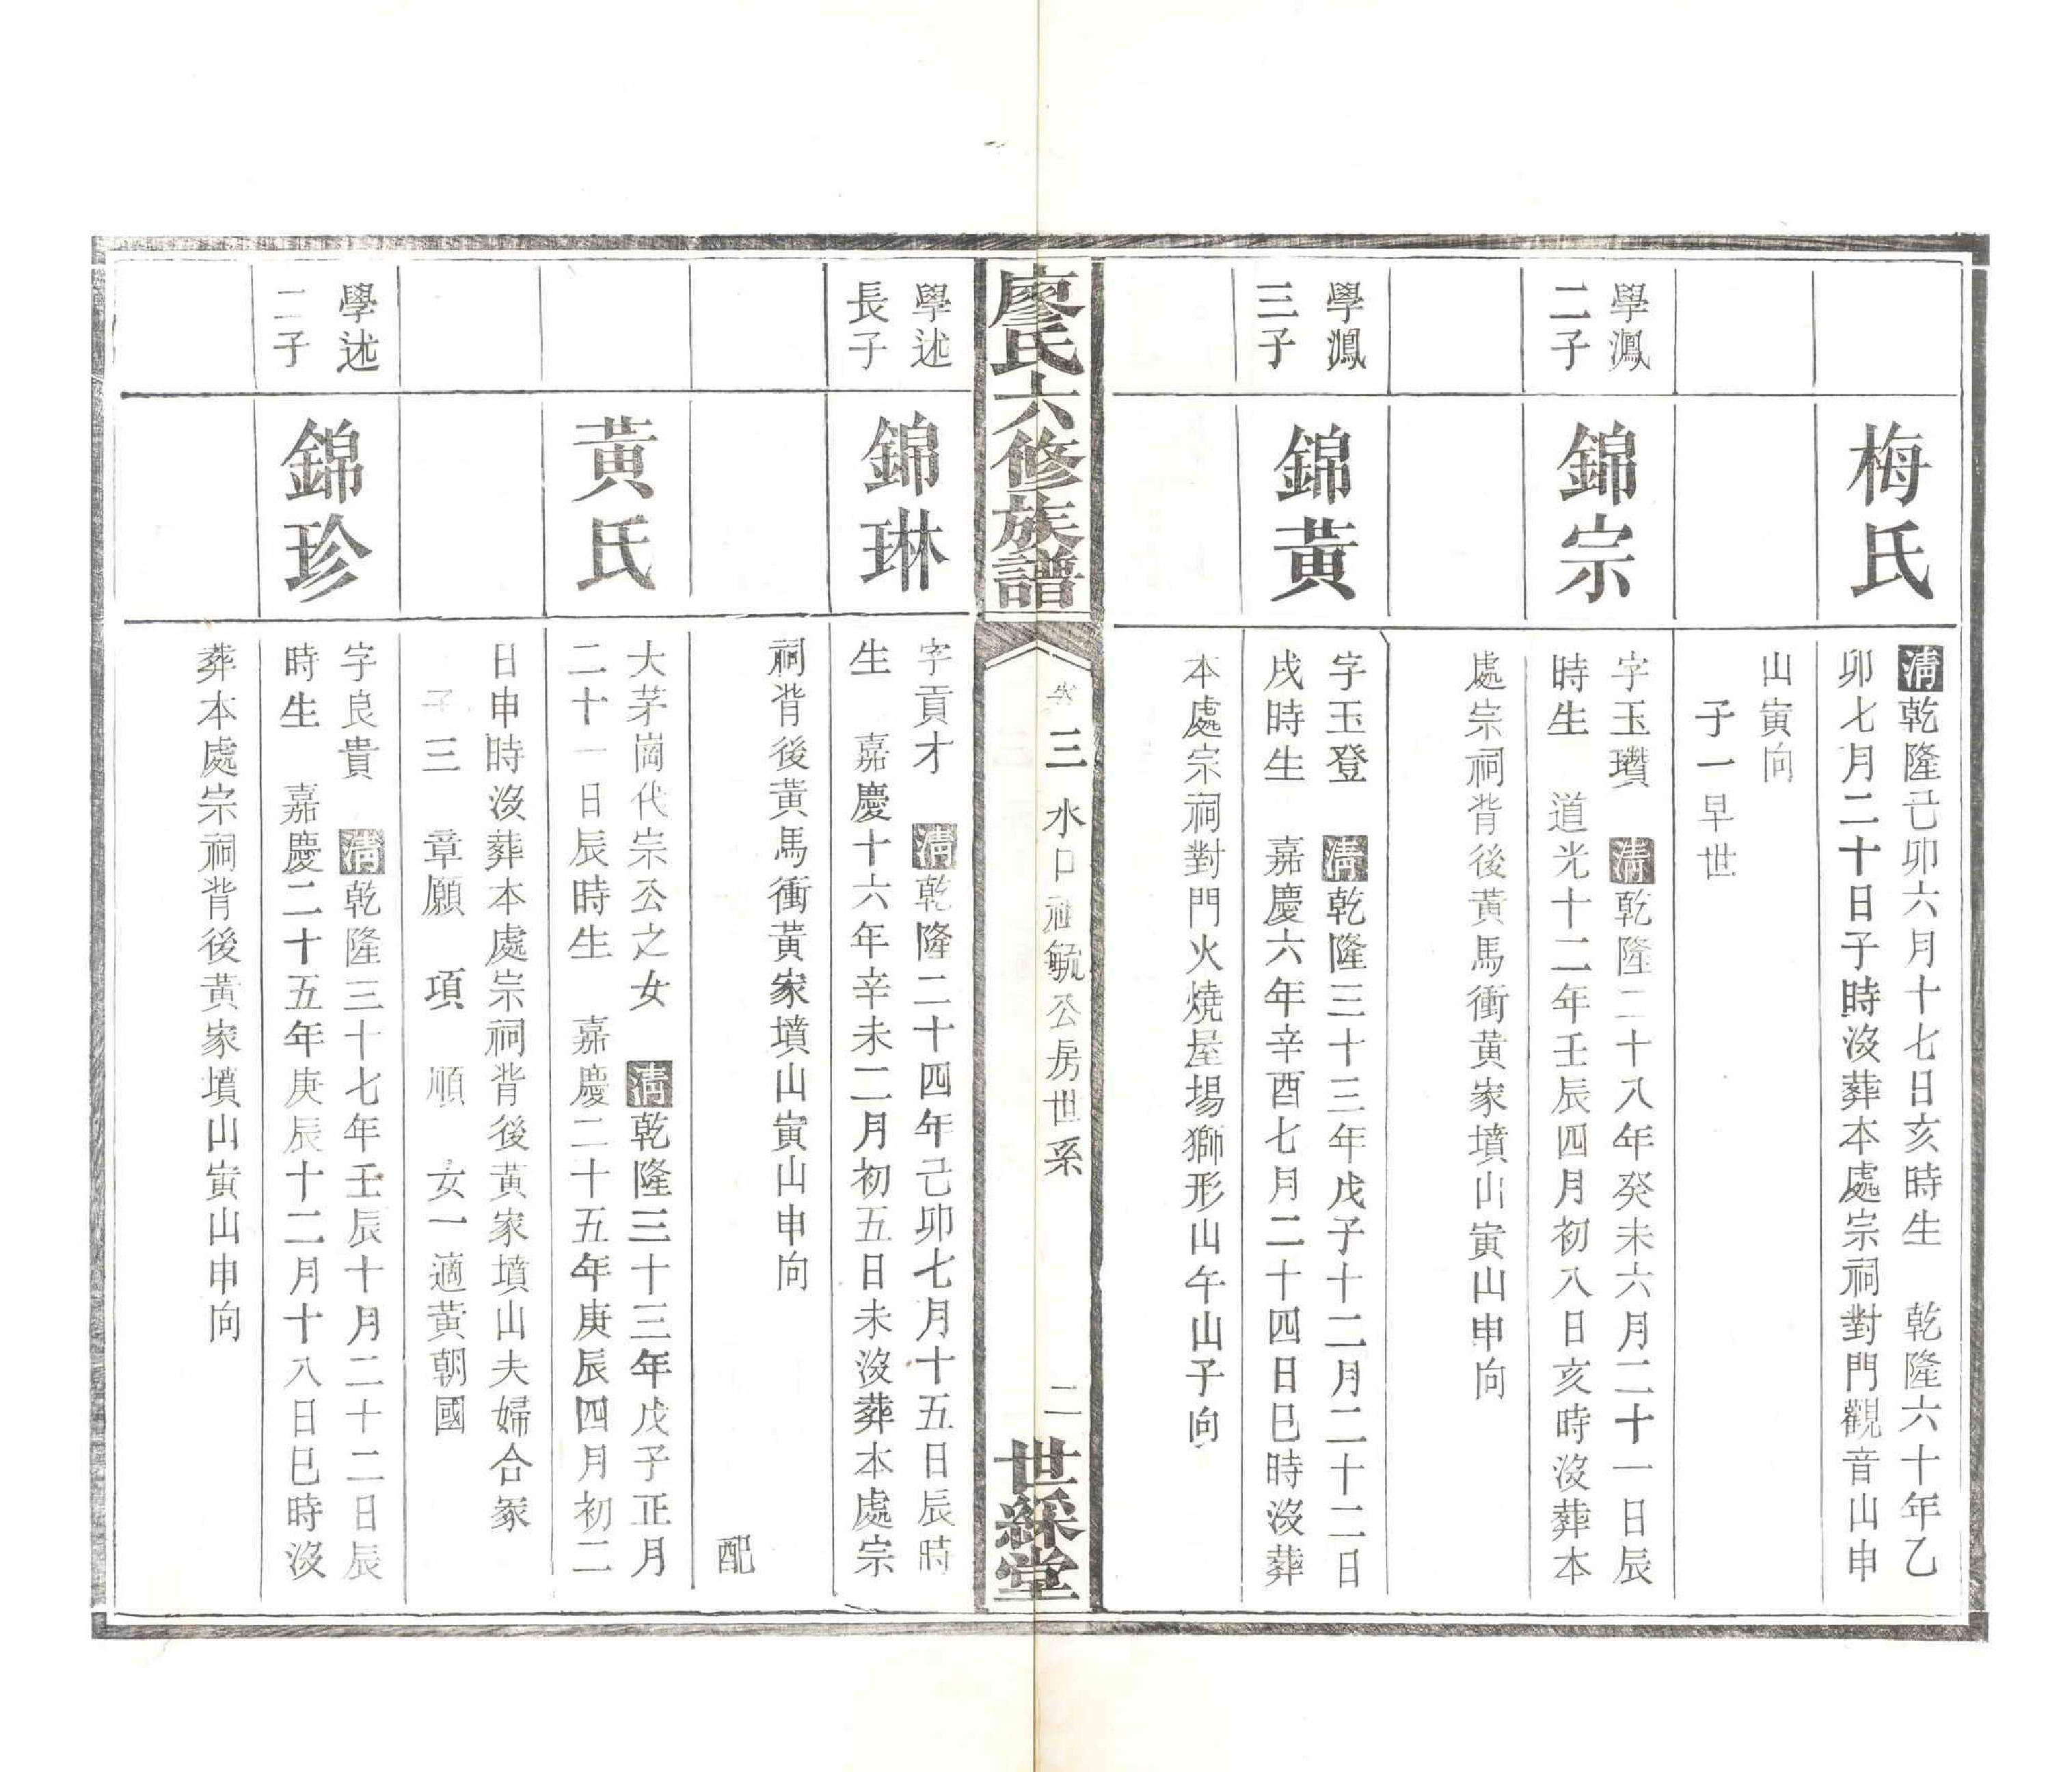 梅氏
清乾隆己卯六月十七日亥時生　乾隆六十年乙
卯七月二十日子時沒葬本處宗祠對門觀音山申
山寅向
子一早世
學鳳
二子
錦宗
字玉瓚　清乾隆二十八年癸未六月二十一日辰
時生　道光十二年壬辰四月初八日亥時沒葬本
處宗祠背後黃馬衝黃家墳山寅山申向
學鳳
三子
錦黃
字玉登　清乾隆三十三年戊子十二月二十二日
戌時生　嘉慶六年辛酉七月二十四日巳時沒葬
本處宗祠對門火燒屋場獅形山午山子向
廖氏六修族譜
卷三　水口祖毓公房世系　二
世綵堂
學述
長子
錦琳
字貢才　清乾隆二十四年己卯七月十五日辰時
生　嘉慶十六年辛未二月初五日未沒葬本處宗
祠背後黃馬衝黃家墳山寅山申向
配
黃氏
大茅崗代宗公之女　清乾隆三十三年戊子正月
二十一日辰時生　嘉慶二十五年庚辰四月初二
日申時沒葬本處宗祠背後黃家墳山夫婦合冢
子三　章願　項　順　女一適黃朝國
學述
二子
錦珍
字良貴　清乾隆三十七年壬辰十月二十二日辰
時生　嘉慶二十五年庚辰十二月十八日巳時沒
葬本處宗祠背後黃家墳山寅山申向